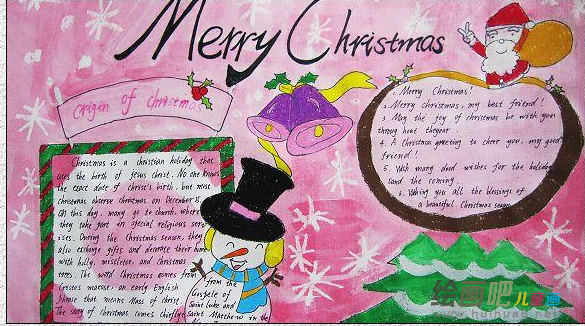 Merry Christmas
Origin of christmas
Christmas is a christian holiday that
the birth of Jesus Christ. No one knows
the exact date of christ's birth, but most
christmas observe Christmas on December
On this day, many go to church, where
they take part in special religious serv
ices. During the Christmas season, they
also exchange gifts and decorate their home
with holly, mistletoe, and Christmas
trees. The word Christmas comes from
Cristes maesse, an early English
phrase that means Mass of christ.
The story of Christmas comes chiefly
from the
Gospels of
Saint Luke and
Saint Matthew in the
1. Merry Christmas!
2. Merry Christmas, my best friend!
3. May the joy of christmas be with you
through hout theyear
4. A Christmas greeting to cheer you, my good
friend!
5. With many good wishes for the holiday
and the coming
6. Wishing you all the blessings of
a beautiful Christmas season
绘画吧儿童画
www.huihua8.net